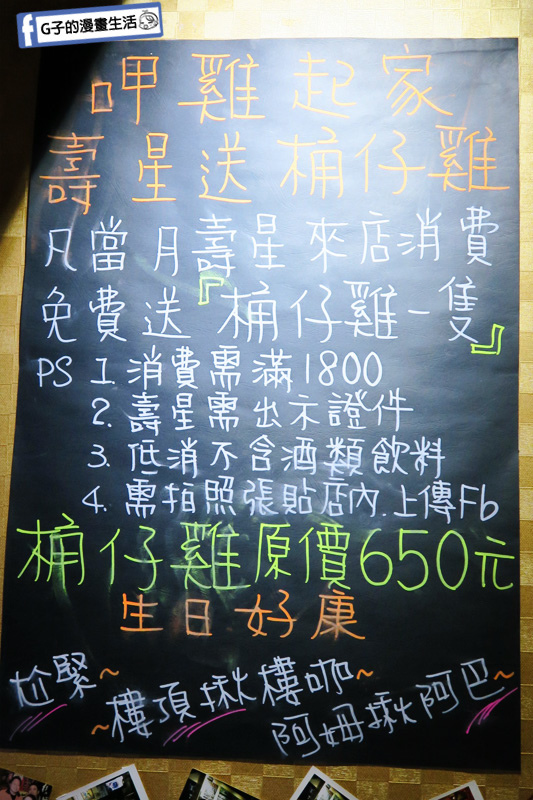 G子的漫畫生活
呷雞起家
壽星送桶仔雞
凡當月壽星來店消費
免費送『桶仔雞一隻』
PS 1. 消費需滿1800
2. 壽星需出示證件
3. 低消不含酒類飲料
4. 需拍照張貼店內.上傳Fb
桶仔雞原價650元
生日好康
尬緊~
~樓頂揪樓咖~
阿姆揪阿巴~